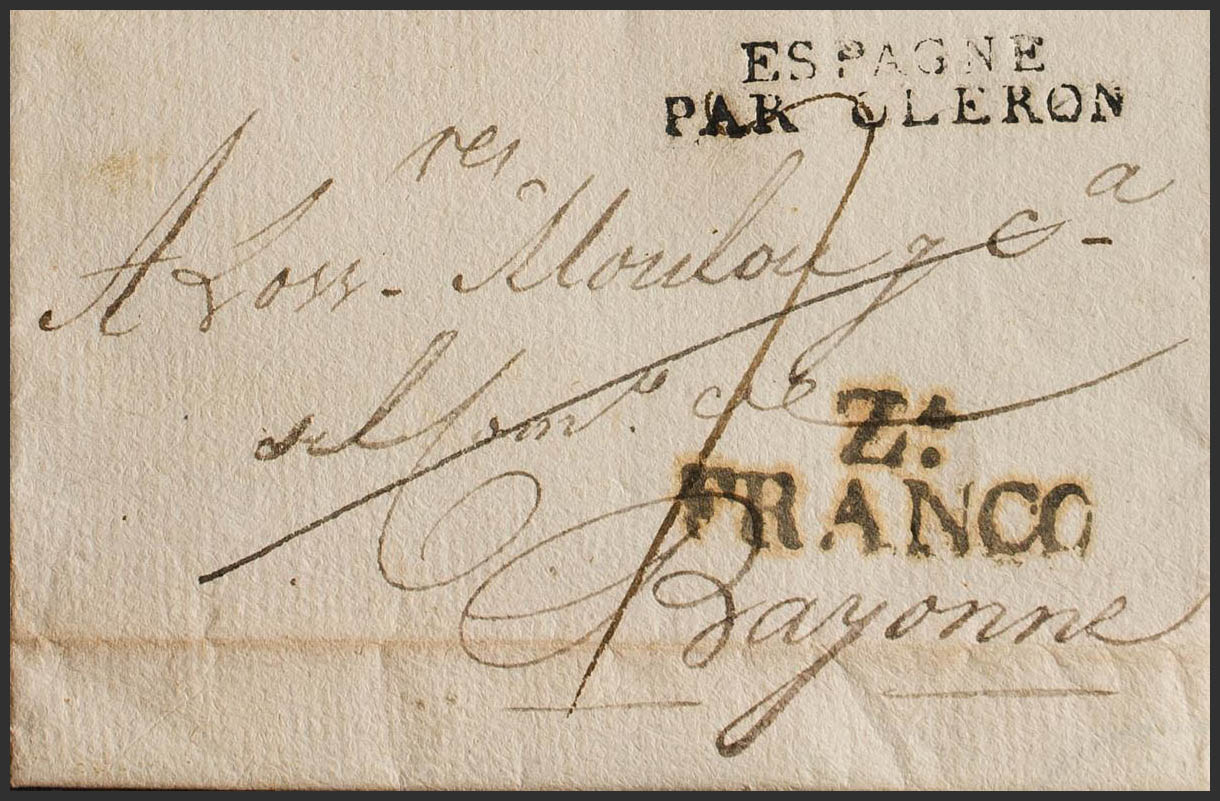 ESPAGNE
PAR OLERON
res
A Los Sres Moulou y Ca
del Comº de
Zª
FRANCO
Bayonne